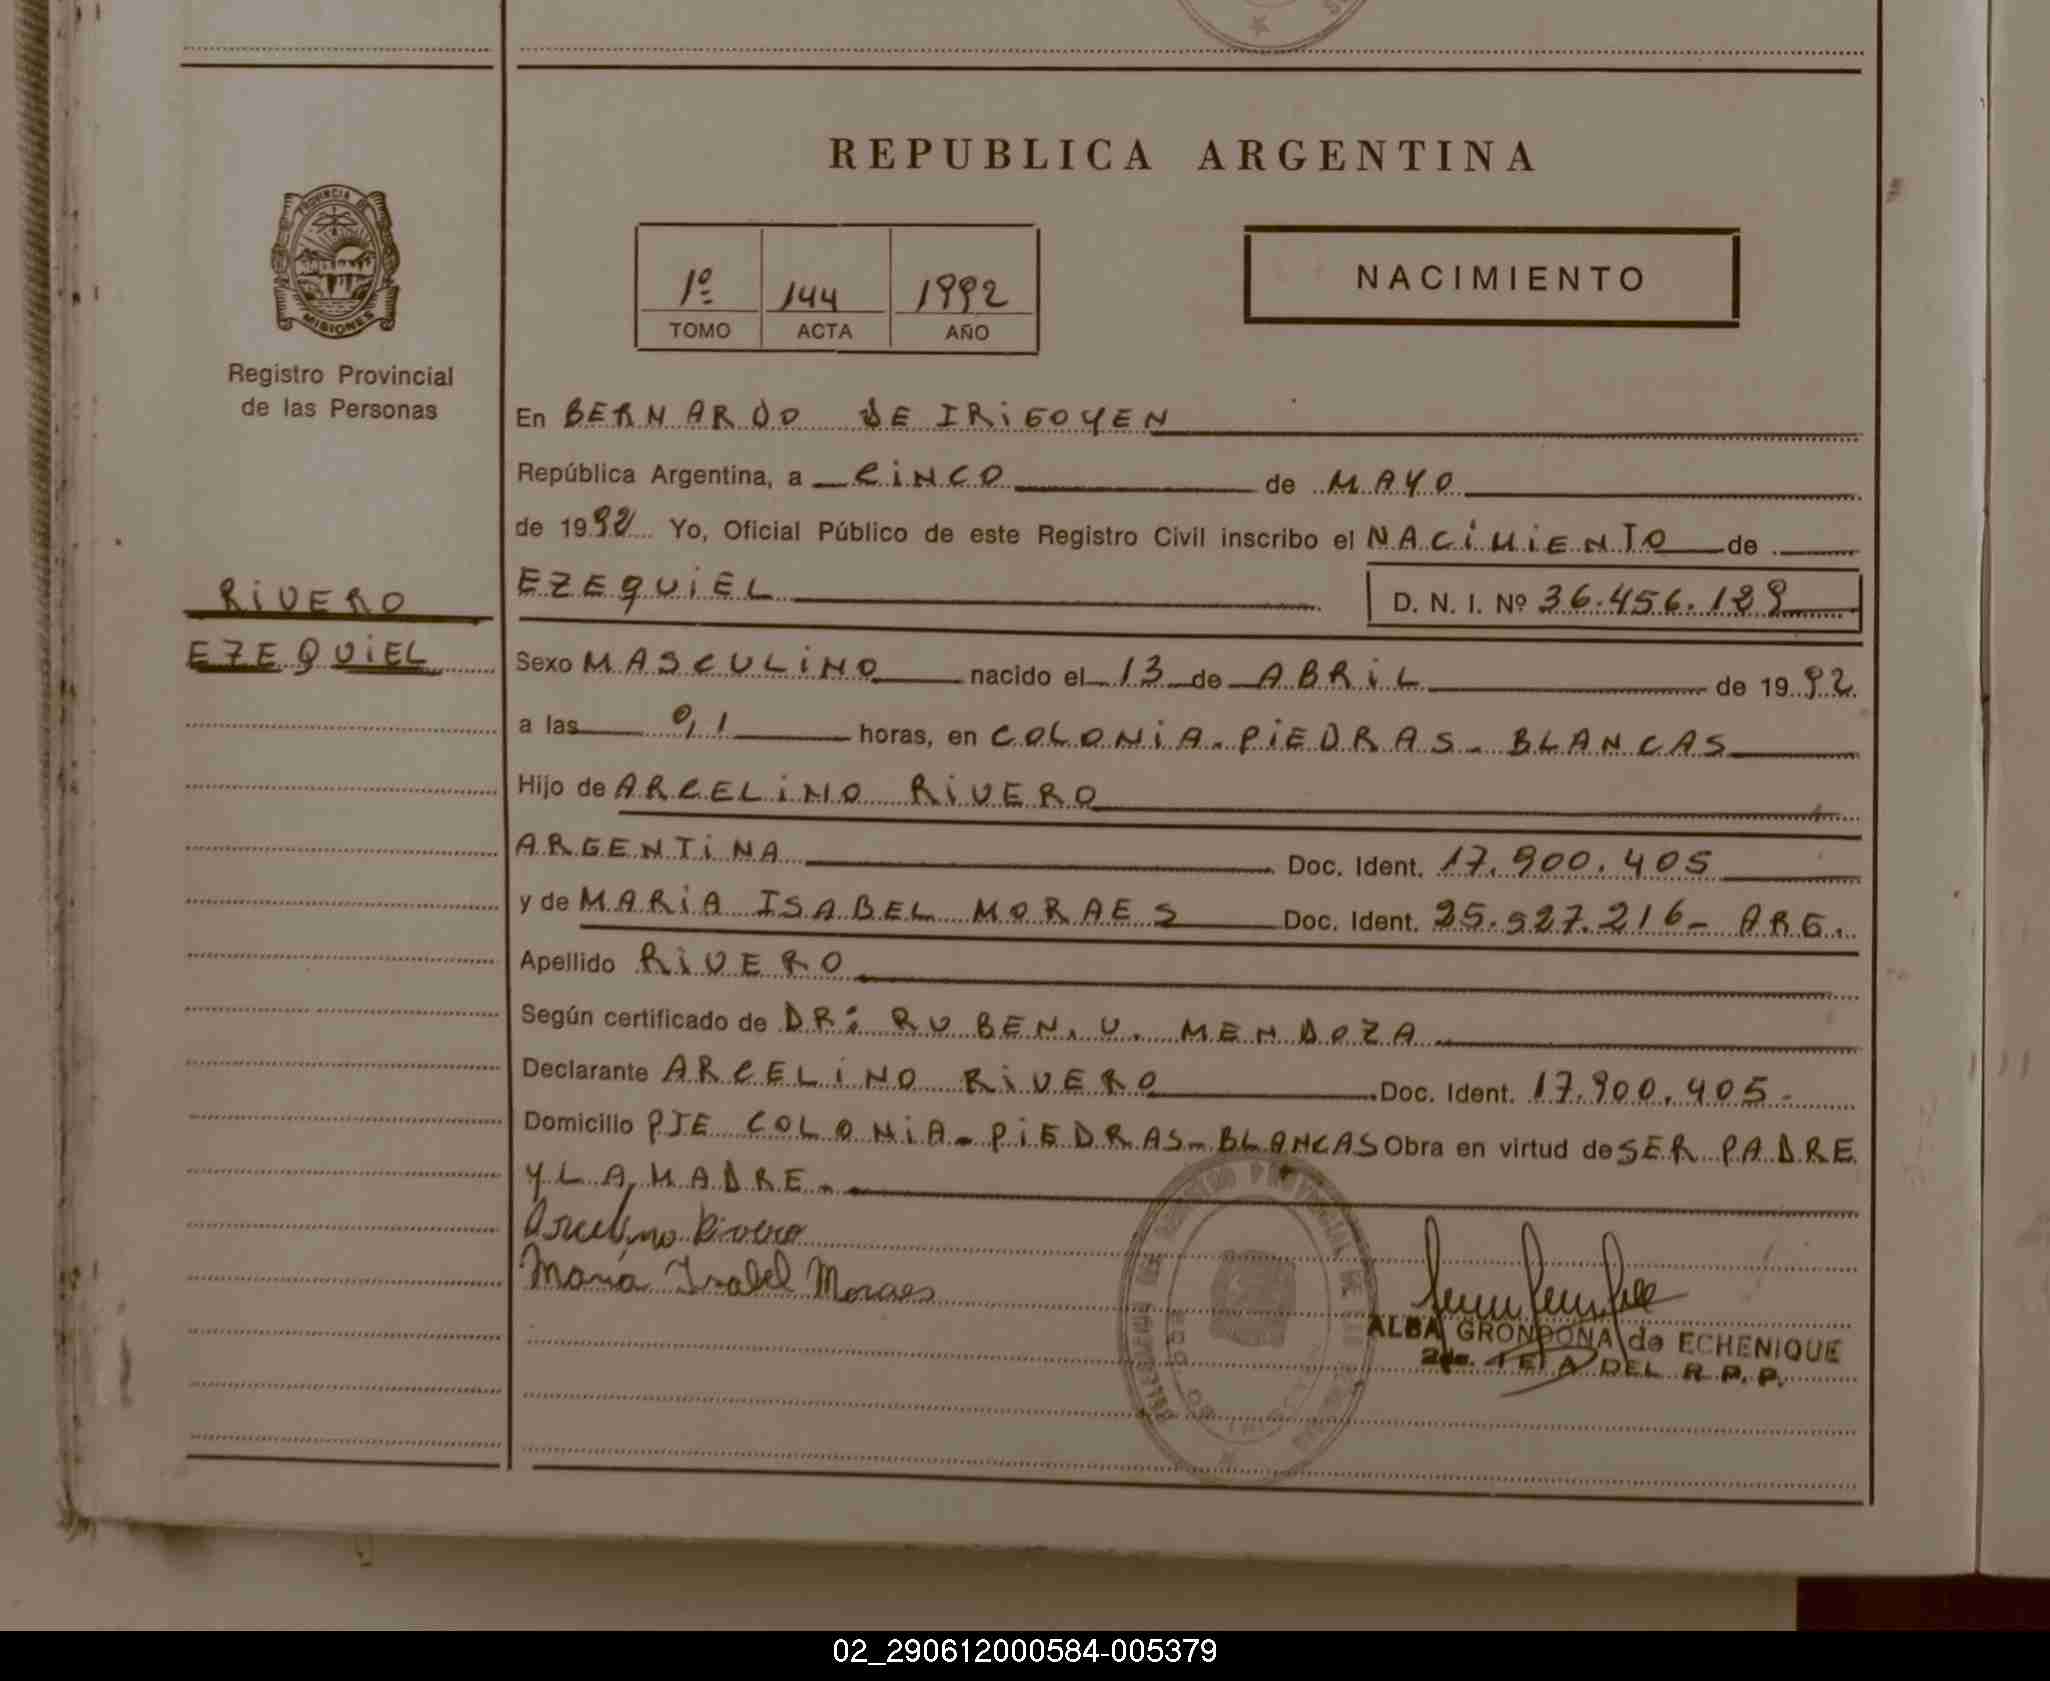 REPUBLICA ARGENTINA
PROVINCIA DE
MISIONES
Registro Provincial
de las Personas
1º 144 1992
TOMO ACTA AÑO
NACIMIENTO
En BERNARDO DE IRIGOYEN
República Argentina, a CINCO de MAYO
de 1992 Yo, Oficial Público de este Registro Civil inscribo el NACIMIENTO de
RIVERO
EZEQUIEL
EZEQUIEL D. N. I. Nº 36.456.189
Sexo MASCULINO nacido el 13 de ABRIL de 1992
a las 0,1 horas, en COLONIA-PIEDRAS-BLANCAS
Hijo de ARCELINO RIVERO
ARGENTINA Doc. Ident. 17.900.405
y de MARIA ISABEL MORAES Doc. Ident. 25.927.216- ARG.
Apellido RIVERO
Según certificado de DR: RUBEN. U. MENDOZA
Declarante ARCELINO RIVERO Doc. Ident. 17.900.405-
Domicilio PJE COLONIA-PIEDRAS-BLANCAS Obra en virtud de SER PADRE
Y LA MADRE.-
Arcelino Rivero
Maria Isabel Moraes
ALBA GRONDONA de ECHENIQUE
DEL R.P.P.
02_290612000584-005379